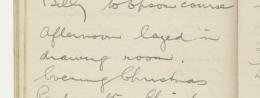 Billy to Epsom course
Afternoon lazed in
drawing room.
Evening Christmas